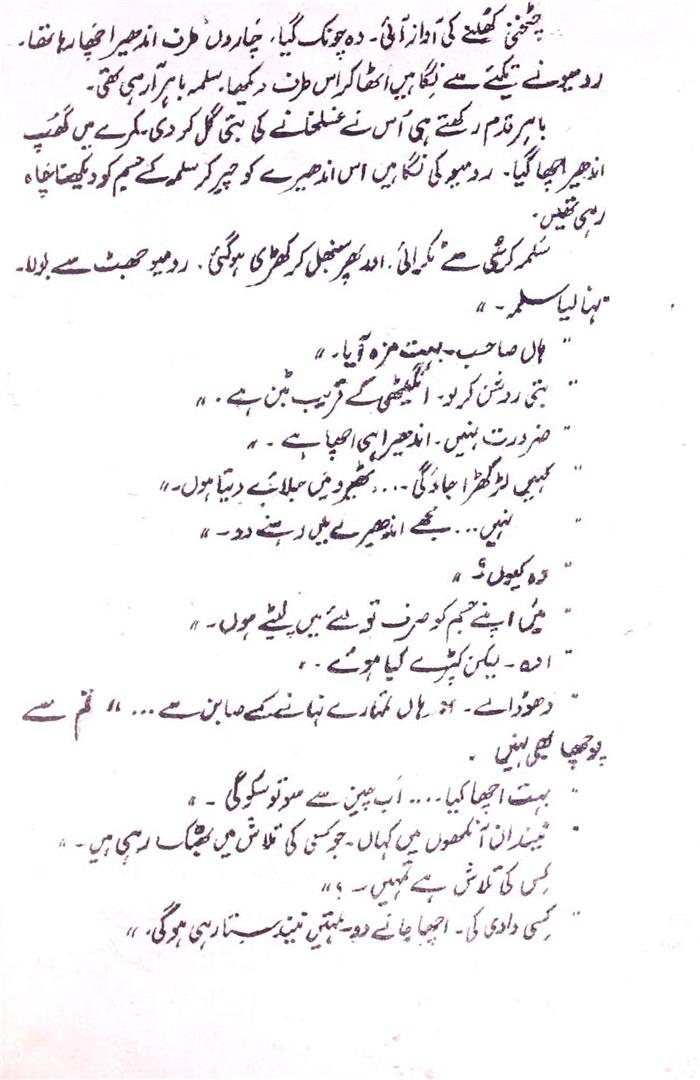 چٹخنی کھلنے کی آواز آئی۔ وہ چونک گیا، چاروں طرف اندھیرا چھا رہا تھا۔
ردمیو نے تکیئے سے نگاہیں اٹھا کر اس طرف دیکھا، سلمہ باہر آ رہی تھی۔
باہر قدم رکھتے ہی اُس نے غسلخانے کی بتی گل کر دی۔ کمرے میں گھُپ
اندھیرا چھا گیا۔ ردمیو کی نگاہیں اس اندھیرے کو چیر کر سلمہ کے جسم کو دیکھنا چاہ
رہی تھیں۔
سَلمہ کرسُی سے ٹکرائی، اور پھر سنبھل کر کھڑی ہو گئی۔ ردمیو جھٹ سے بولا۔
"نہا لیا سلمہ۔"
"ہاں صاحب۔ بہت مزہ آیا۔"
"بتی روشن کر لو۔ انگیٹھی کے قریب بٹن ہے۔"
"ضرورت نہیں۔ اندھیرا ہی اچھا ہے۔"
"کہیں لڑکھڑا جاؤ گی.... ٹھیرو میں جلائے دیتا ہوں۔"
"نہیں... مجھے اندھیرے میں رہنے دو۔"
"وہ کیوں؟"
"میں اپنے جسم کو صرف تولئے میں لپٹے ہوں۔"
"اوہ۔ لیکن کپڑے کیا ہوئے۔"
"دھو ڈالے۔ ہاں تمہارے نہانے کے صابن سے..." تم سے
پوچھا بھی نہیں۔
"بہت اچھا کیا.... اَب چین سے سو تو سکو گی۔"
"نیند ان آنکھوں میں کہاں۔ جو کسی کی تلاش میں بھٹک رہی ہیں۔"
کِس کی تلاش ہے تمہیں۔؟"
"کِسی وادی کی۔ اچھا جانے دو۔ تمہیں نیند ستا رہی ہو گی۔"